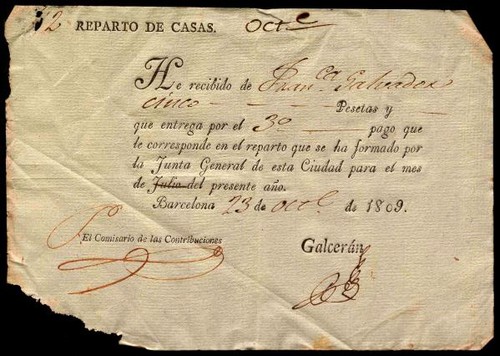 2 REPARTO DE CASAS. Oct.e
He recibido de Fran.ca Salvador
cinco Pesetas y
que entrega por el 3o pago que
le corresponde en el reparto que se ha formado por
la Junta General de esta Ciudad para el mes
de Julio del presente año.
Barcelona 23 de Oct.e de 1809.
El Comisario de las Contribuciones
Galcerán